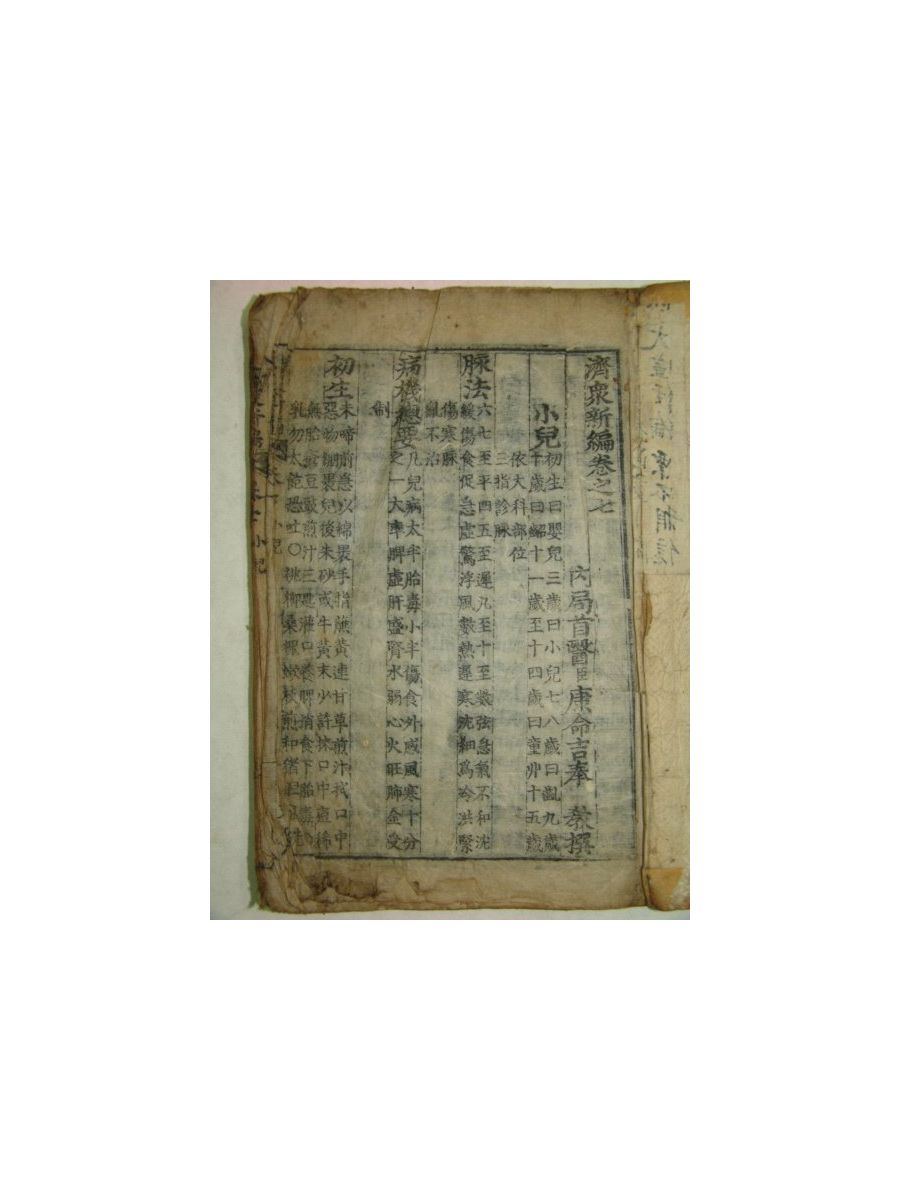 濟衆新編卷之七
內局首醫臣康命吉奉 教撰
小兒
初生曰嬰兒三歲曰小兒七八歲曰齠九歲
十歲曰齠十一歲至十四歲曰童丱十五歲
依大科部位
三指診脉
脉法
六七至平四五至遲九至十至數弦急氣不和沈
緩傷食促急虛驚浮風數熱遲寒沈細爲冷洪緊
傷寒脉
亂不治
病機總要
凡兒病太半胎毒小半傷食外感風寒十分
之一大率脾虛肝盛腎水弱心火旺肺金受
制
初生
未啼前急以綿裹手指蘸黃連甘草煎汁拭口中
惡物綿裹兒後朱砂或牛黃末少許抹口中痘稀
無胎 豆豉煎汁三匙灌口養脾消食下胎毒
乳勿太飽恐吐〇桃柳桑槐嫩枝煎和猪胆